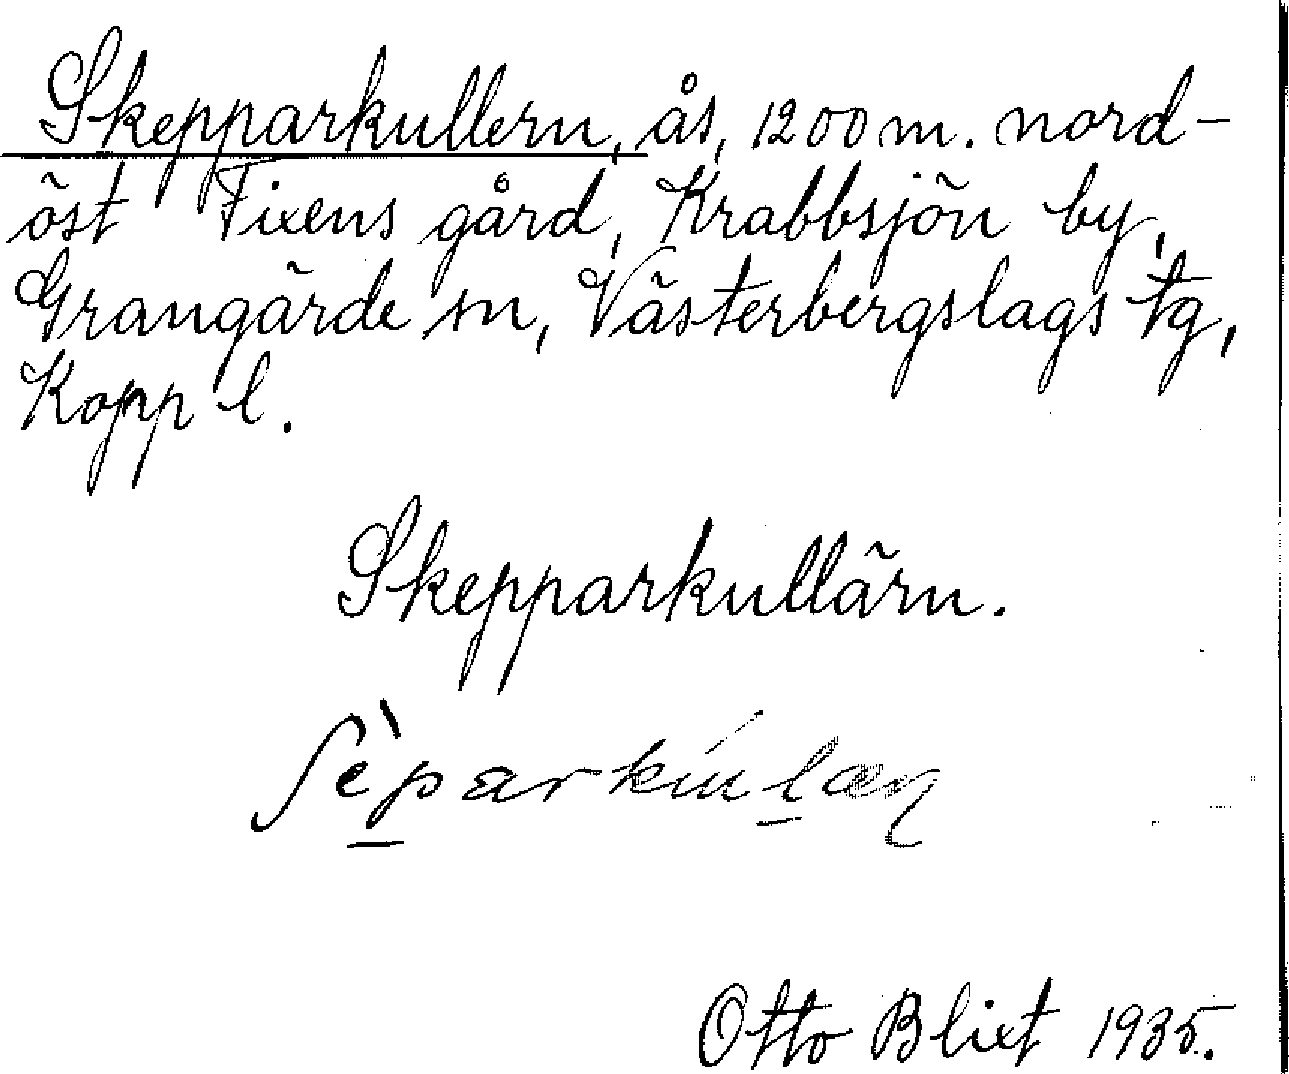 Skepparkullern, ås, 1200 m. nord-
öst Fixens gård, Krabbsjön by,
Grangärde sn, Västerbergslags tg,
Kopp l.
Skepparkullärn.
Otto Blixt 1935.